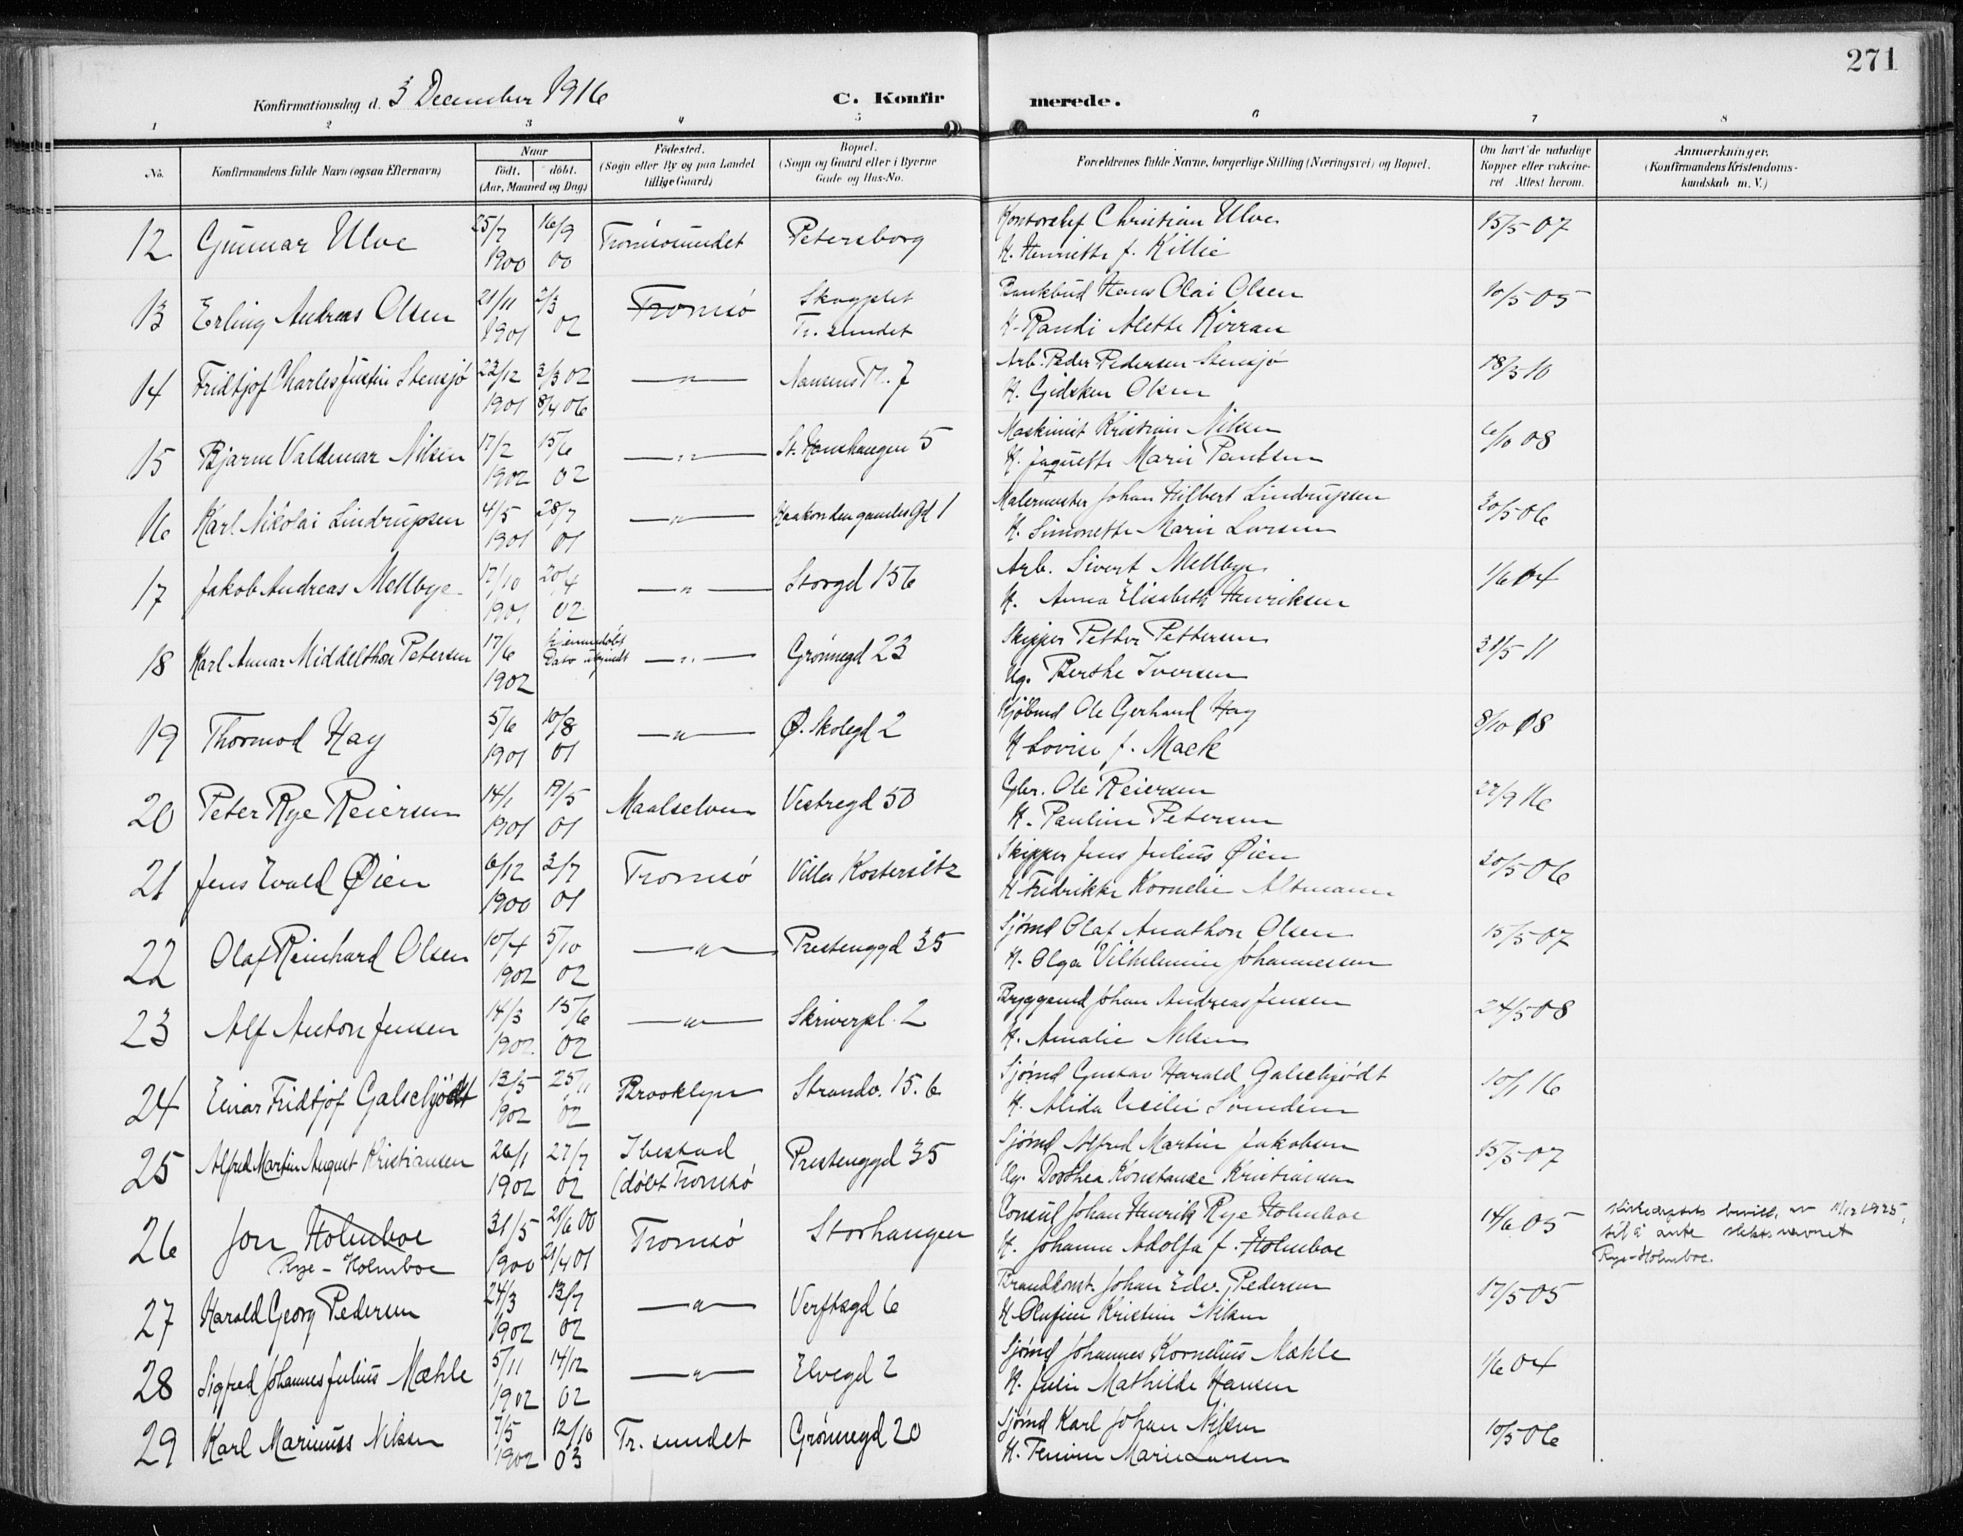 271
Konfirmationsdag d. 3 December 1916
C. Konfirmerede.
1 2 3 4 5 6 7 8
No. Konfirmandens fulde Navn (ogsaa Efternavn) Naar födt. döbt. (Aar, Maaned og Dag) Födested. (Sogn eller By og paa Landet tillige Gaard) Bopæl. (Sogn og Gaard eller i Byerne Gade og Hus-No. Forældrenes fulde Navne, borgerlige Stilling (Næringsvei) og Bopæl. Om havt de naturlige Kopper eller vaccineret Attest herom. Anmærkninger. (Konfirmandens Kristendomskundskab m. V.)
12 Gunnar Ulve 25/7 1900 16/9 00 Tromsösundet Petersborg Kontorchef Christian Ulve 15/5 07
H. Henriette f. Killie
13 Erling Andreas Olsen 21/11 1901 2/3 02 Tromsö Skogplst Tr. sundet Bankbud Hans Olai Olsen 10/5 05
H. Randi Alette Kirran
14 Fridtjof Charles Justin Stensjö 22/12 1901 2/3 02 8/4 06 —"— Nansens Pl. 7 Arb. Peder Pedersen Stensjö 18/5 10
H. Gidsken Olsen
15 Bjarne Valdemar Nilsen 17/2 1902 15/6 02 —"— St. Hanshaugen 5 Maskinist Kristian Nilsen 6/10 08
H. Jaquette Marie Paulsen
16 Karl Nikolai Lindrupsen 4/5 1901 28/7 01 —"— Haakon den gamles Gd 1 Malermester Johan Hilbert Lindrupsen 20/5 06
H. Simonette Marie Larsen
17 Jakob Andreas Mellbye 17/10 1901 20/4 02 —"— Storgd 156 Arb. Sivert Mellbye 1/6 04
H. Anna Elisabeth Henriksen
18 Karl Annar Middelthon Petersen 17/6 1902 hjemmedöbt Dato ukjendt —"— Grönnegd 23 Skipper Petter Pettersen 31/5 11
Ug. Berthe Iversen
19 Thormod Hay 5/6 1901 10/8 01 —"— Ø. Skolegd 2 Kjöbmd Ole Gerhard Hay 8/10 08
H Lovise f. Mack
20 Peter Rye Reiersen 14/1 1901 19/5 01 Maalselven Vestregd 50 Gbr. Ole Reiersen 27/9 16
H. Pauline Petersen
21 Jens Evald Øien 6/12 1900 3/7 01 Tromsö Villa Kostersitz Skipper Jens Julius Øien 20/5 06
H Fredrikke Kornelie Altmann
22 Olaf Reinhard Olsen 10/4 1902 5/10 02 —"— Prestenggd 35 Sjömd Olaf Amathon Olsen 15/5 07
H. Olga Vilhelmine Johannessen
23 Alf Anton Jensen 14/3 1902 15/6 02 —"— Skriverpl. 2 Byggemd Johan Andreas Jensen 24/5 08
H. Amalie Nilsen
24 Einar Fridtjof Galschjödt 13/5 1902 25/11 02 Brooklyn Strandv. 15. 6 Sjömd Gustav Harald Galschjödt 10/1 16
H. Alida Cecilie
25 Alfred Martin August Kristiansen 26/1 1902 27/7 02 Ibestad (döbt Tromsö Prestenggd 35 Sjömd Alfred Martin Jakobsen 15/5 07
Ug. Dorthea Konstanse Kristiansen
26 Jon Holmboe Rye-Holmboe 31/5 1900 21/6 00 21/4 01 Tromsö Storhaugen Consul Johan Henrik Rye Holmboe 14/6 05 Kirkedeptets bevill. av 11/12 1925,
H. Johanne Adolfa f. Holmboe til å anta slektsnavnet
Rye-Holmboe.
27 Harald Georg Pedersen 24/3 1902 13/7 02 —"— Verftsgd 6 Brandkonst. Johan Edv. Pedersen 17/5 05
H Olufine Kristine Nilsen
28 Sigfred Johannes Julius Mæhle 5/11 1902 14/12 02 —"— Elvegd 2 Sjömd Johannes Kornelius Mæhle 1/6 04
H. Julie Mathilde Hansen
29 Karl Marinius Nilsen 7/5 1902 12/10 03 Tr. sundet Grönnegd 20 Sjömd Karl Johan Nilsen 10/5 06
H. Marie Larsen